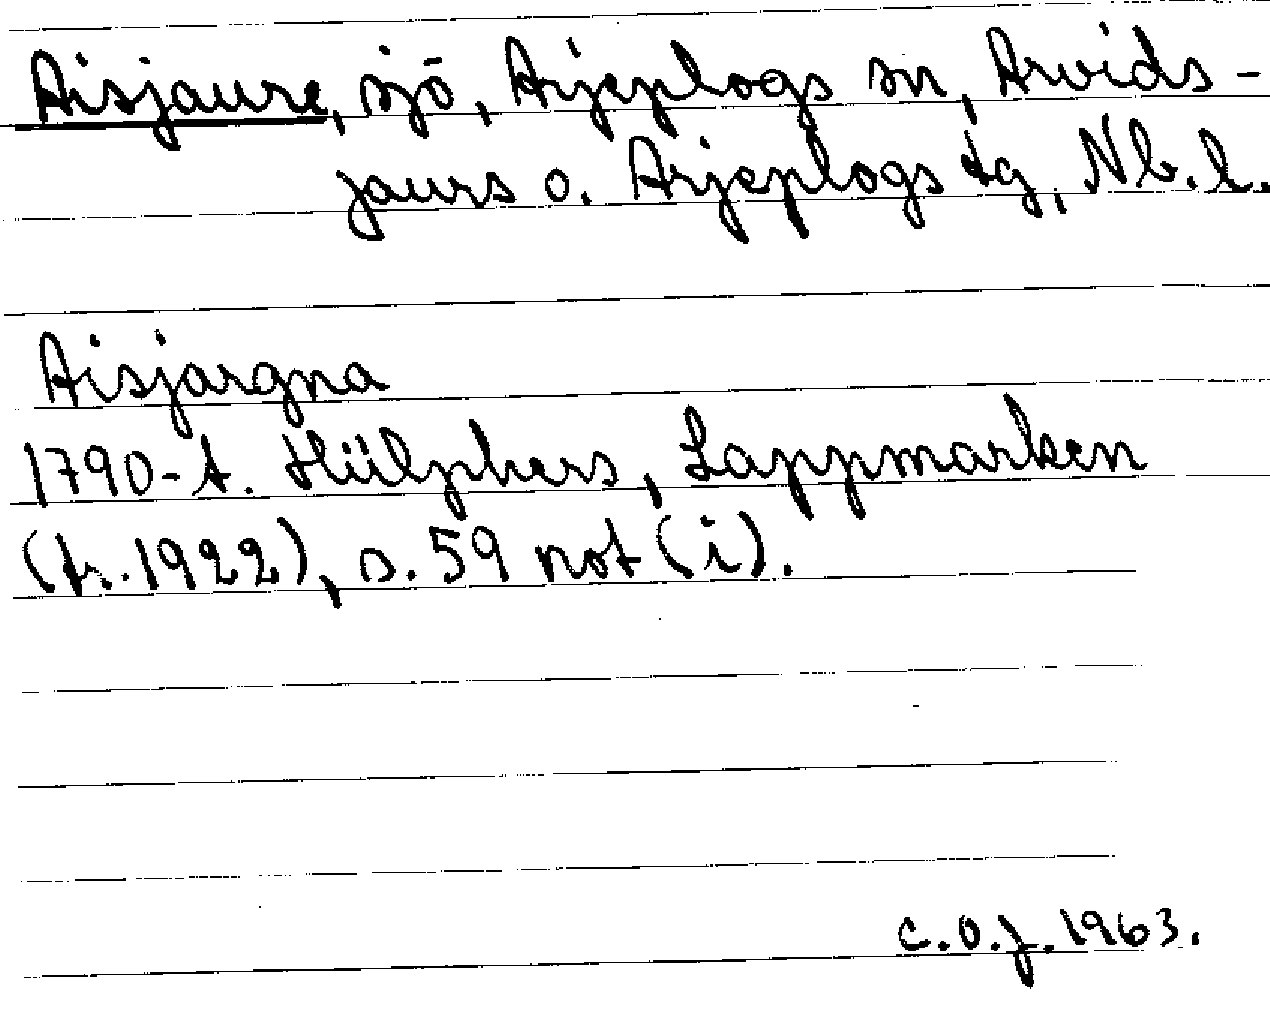 Aisjaure, sjö, Arjeplogs sn, Arvids-
jaurs o. Arjeplogs tg, Nb. l.
Aisjargna
1790-t. Hülphers, Lappmarken
(tr. 1922), s. 59 not (i).
C. O. J. 1963.